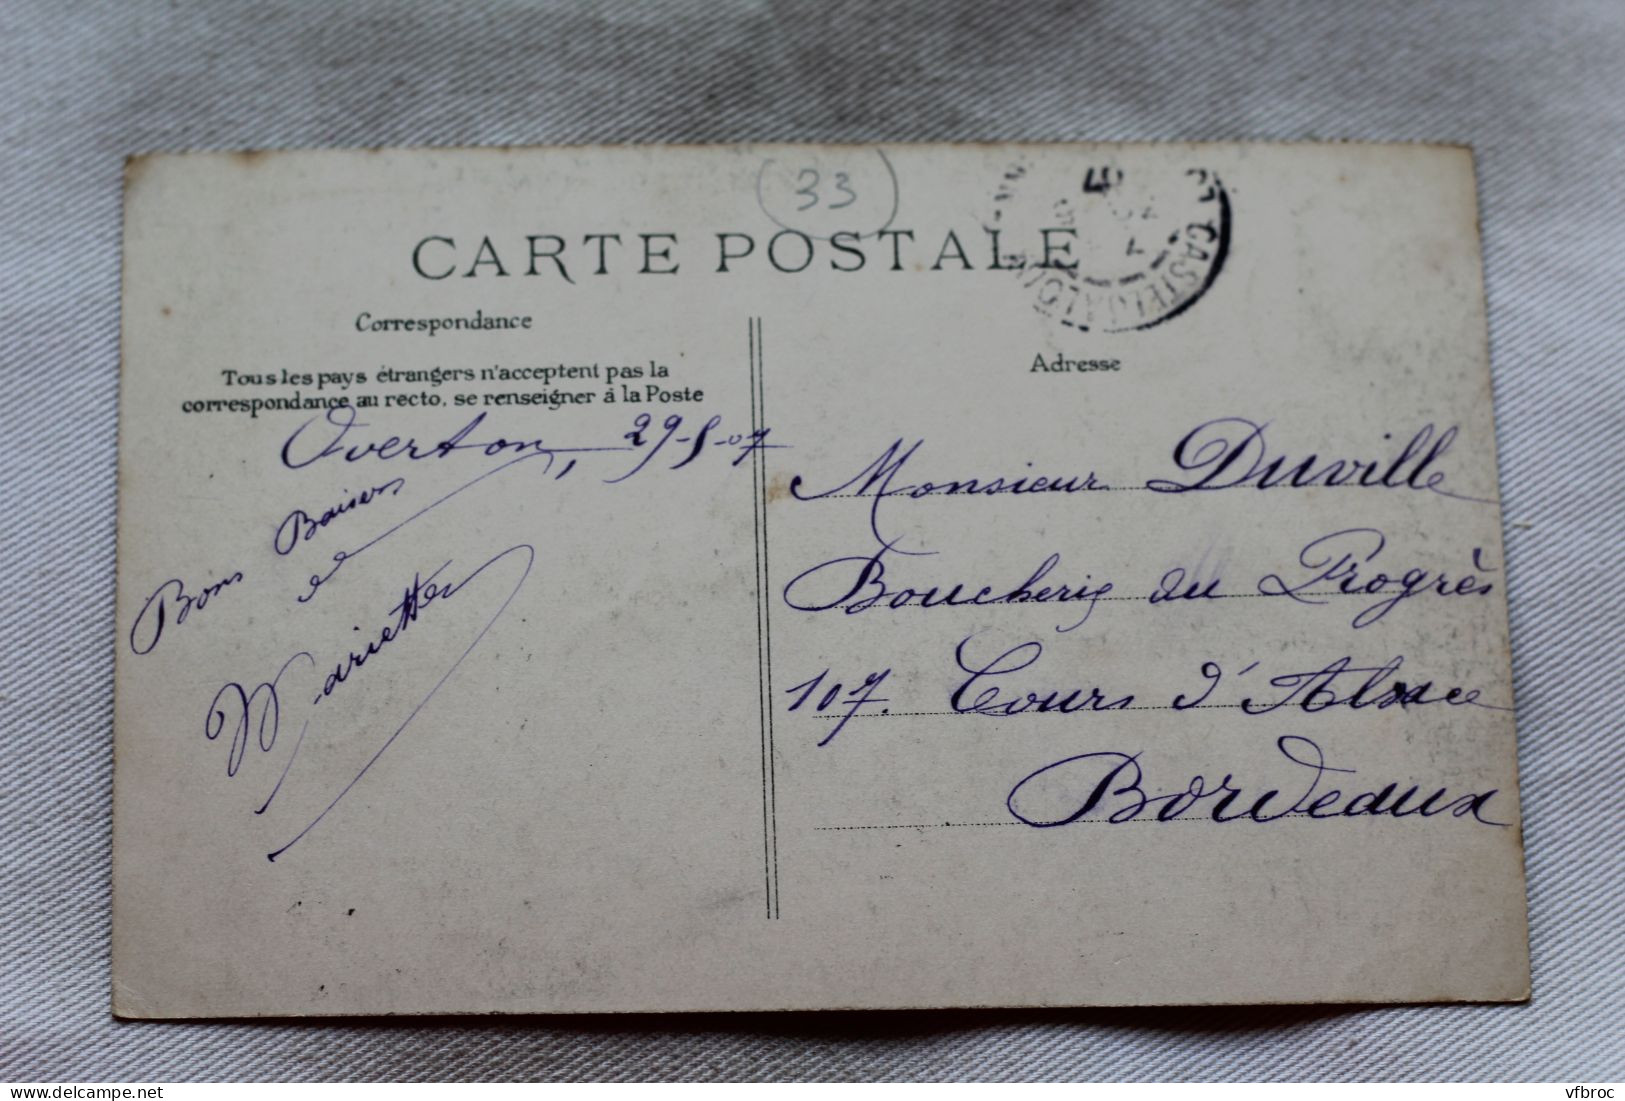 33
CARTE POSTALE
CASTELJALOUX
Correspondance
Tous les pays étrangers n'acceptent pas la
correspondance au recto, se renseigner à la Poste
Averton, 29-5-07
Bons Baisers
Mariette
Adresse
Monsieur Duville
Boucherie du Progrès
107. Cours d'Alsace
Bordeaux
www.delcampe.net
vfbroc